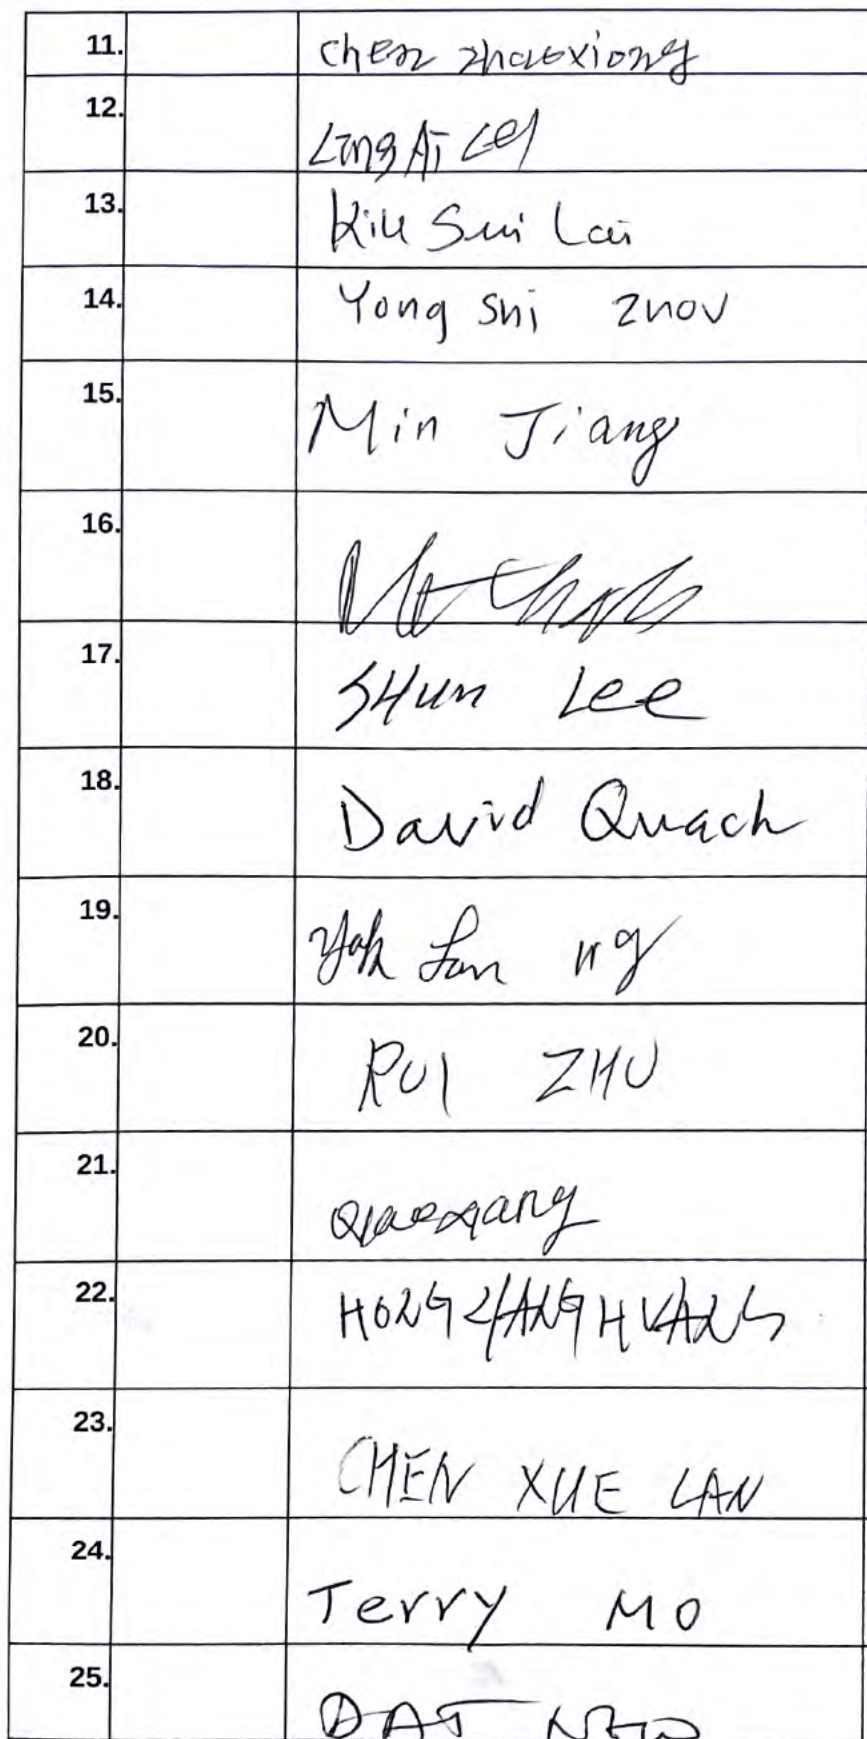 11. Chen Zhaoxiong
12. Ling Ai
13. Kiu Sui Lai
14. Yong Shi Zhou
15. Min Jiang
16.
17. SHun Lee
18. David Quach
19. Yok Lan ng
20. RUI ZHU
21.
22. HONG HUANG
23. CHEN XUE LAN
24. Terry MO
25. DAT